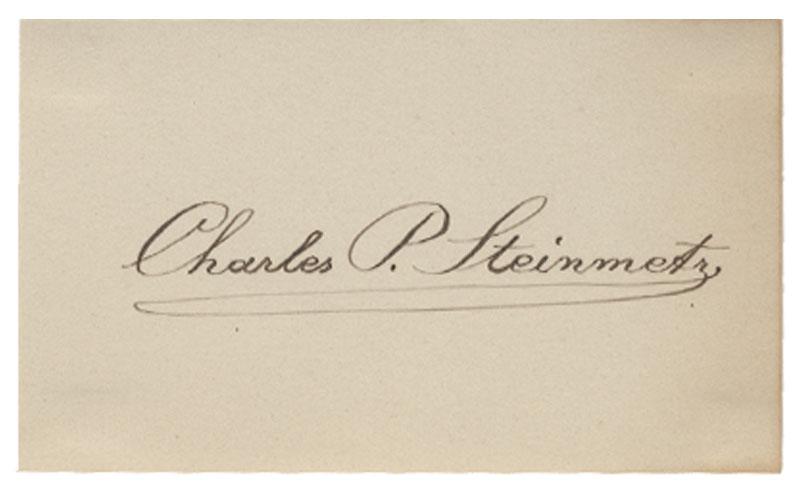 Charles P. Steinmetz